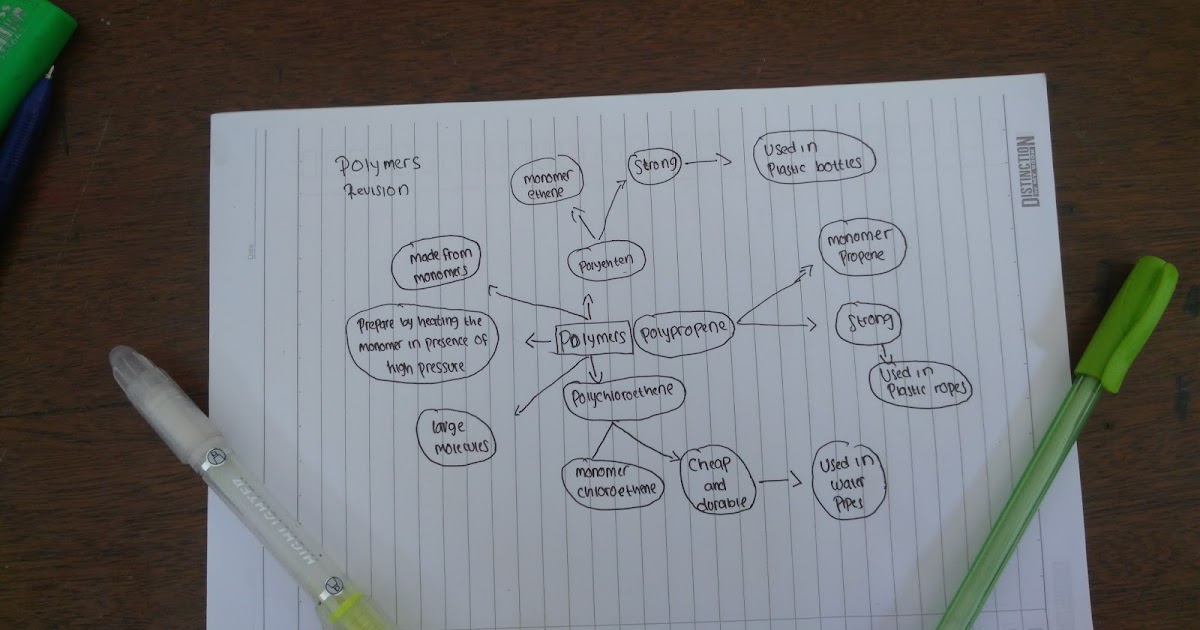 Polymers
Revision
monomer
ethene
Strong
Used in
Plastic bottles
Polyehten
made from
monomers
monomer
Propene
Prepare by heating the
monomer in presence of
high pressure
Polymers
Polypropene
Strong
Used in
Plastic ropes
Polychloroethene
large
molecules
monomer
chloroethene
Cheap
and
durable
Used in
water
Pipes
DISTINCTION
Date
HIGHLIGHTER